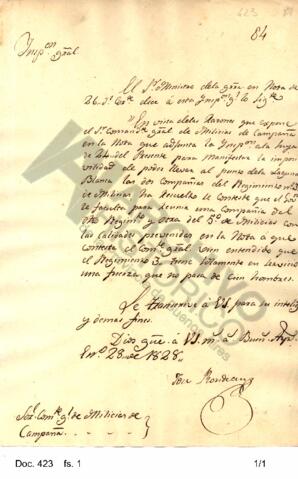 423
84
Insp.on gral.
El S.or Ministro dela grã en Nota de
26 del Cor.te dice a esta Insp.on g.l lo sig.te
"En vista delas razones que expone
el S.or Comand.te gral de Milicias de Campaña
en la Nota que adjunta la Insp.on a la suya
de 24 del Presente para manifestar la impos
ivilidad de poder llevar al punto dela Laguna
Blanca las dos Compañias del Regimiento n.o 3
de Milicias ha resuelto se conteste que el Gov.no
lo faculta para reunir una Compañia del
Regim.to y otra del 5.o de Milicias con
las calidades prevenidas en la Nota a que
contesta el Com.te gral con entendido que
el Regimiento 3.o tiene solamente en servicio
una fuerza que no pasa de cien hombres.
Se transcrive à VS para su intelig.a
y demas fines.
Dios gûe. à VS. m.s a.s Buen.s Ay.s
En.o 28 de 1828.
Jose Rondeau
Sor. Com.te g.l de Milicias de
Campaña
Doc. 423 fs. 1
1/1